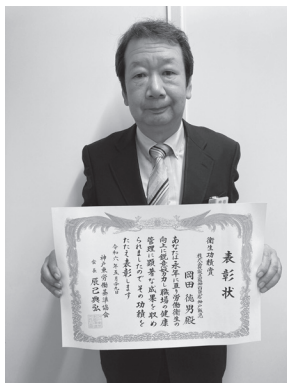 表彰状
衛生功績賞
岡田 徳男殿
あなたは永年に亘り労働衛生の
向上に鋭意努力し職場の健康
管理に顕著な成果を収め
られましたのでその功績を
たたえ表彰します
神戸東労働基準協会
会長 辰己興弘